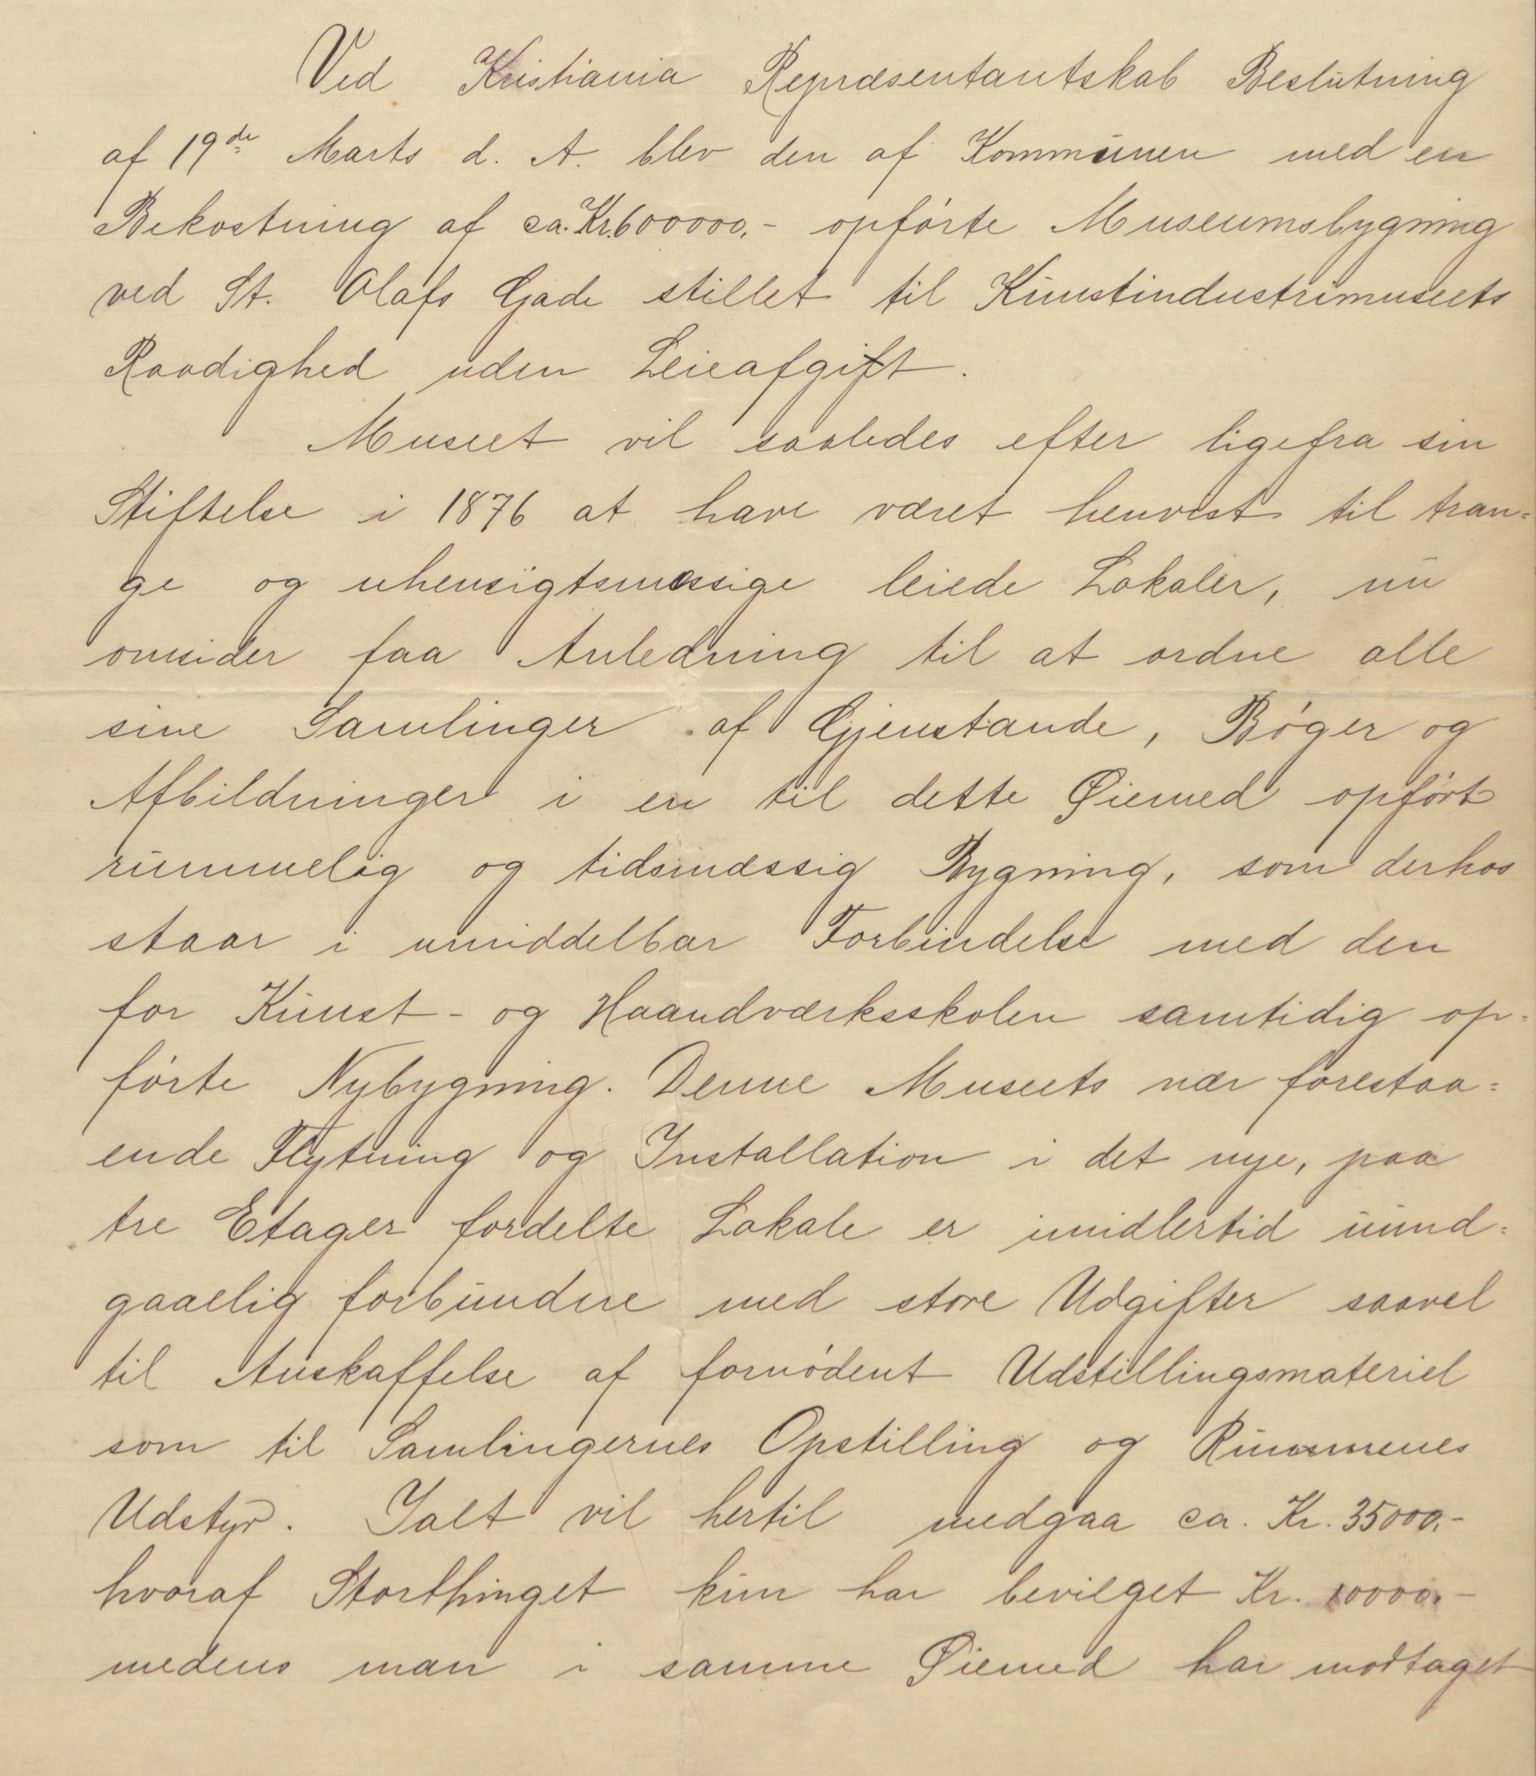 Ved Kristiania Repræsentantskab Beslutning
af 19de Marts d. A. blev den af Kommunen med en
Bekostning af ca. Kr. 600000,- opførte Museumsbygning
ved St. Olafs Gade stillet til Kunstindustrimuseets
Raadighed uden Leieafgift.
Museet vil saaledes efter ligefra sin
Stiftelse i 1876 at have været henvist til tran=
ge og uhensigtsmæssige leiede Lokaler, nu
omsider faa Anledning til at ordne alle
sine Samlinger af Gjenstande, Bøger og
Afbildninger i en til dette Øiemed opført
rummelig og tidsmæssig Bygning, som derhos
staar i umiddelbar Forbindelse med den
for Kunst- og Haandværksskolen samtidig op=
førte Nybygning. Denne Museets nær forestaa=
ende Flytning og Installation i det nye, paa
tre Etager fordelte Lokale er imidlertid uund=
gaaelig forbundne med store Udgifter saavel
til Anskaffelse af fornødent Udstillingsmateriel
som til Samlingernes Opstilling og Rummenes
Udstyr. Ialt vil hertil medgaa ca. Kr. 35000,-
hvoraf Storthinget kun har bevilget Kr. 10000,-
medens man i samme Øiemed har modtaget